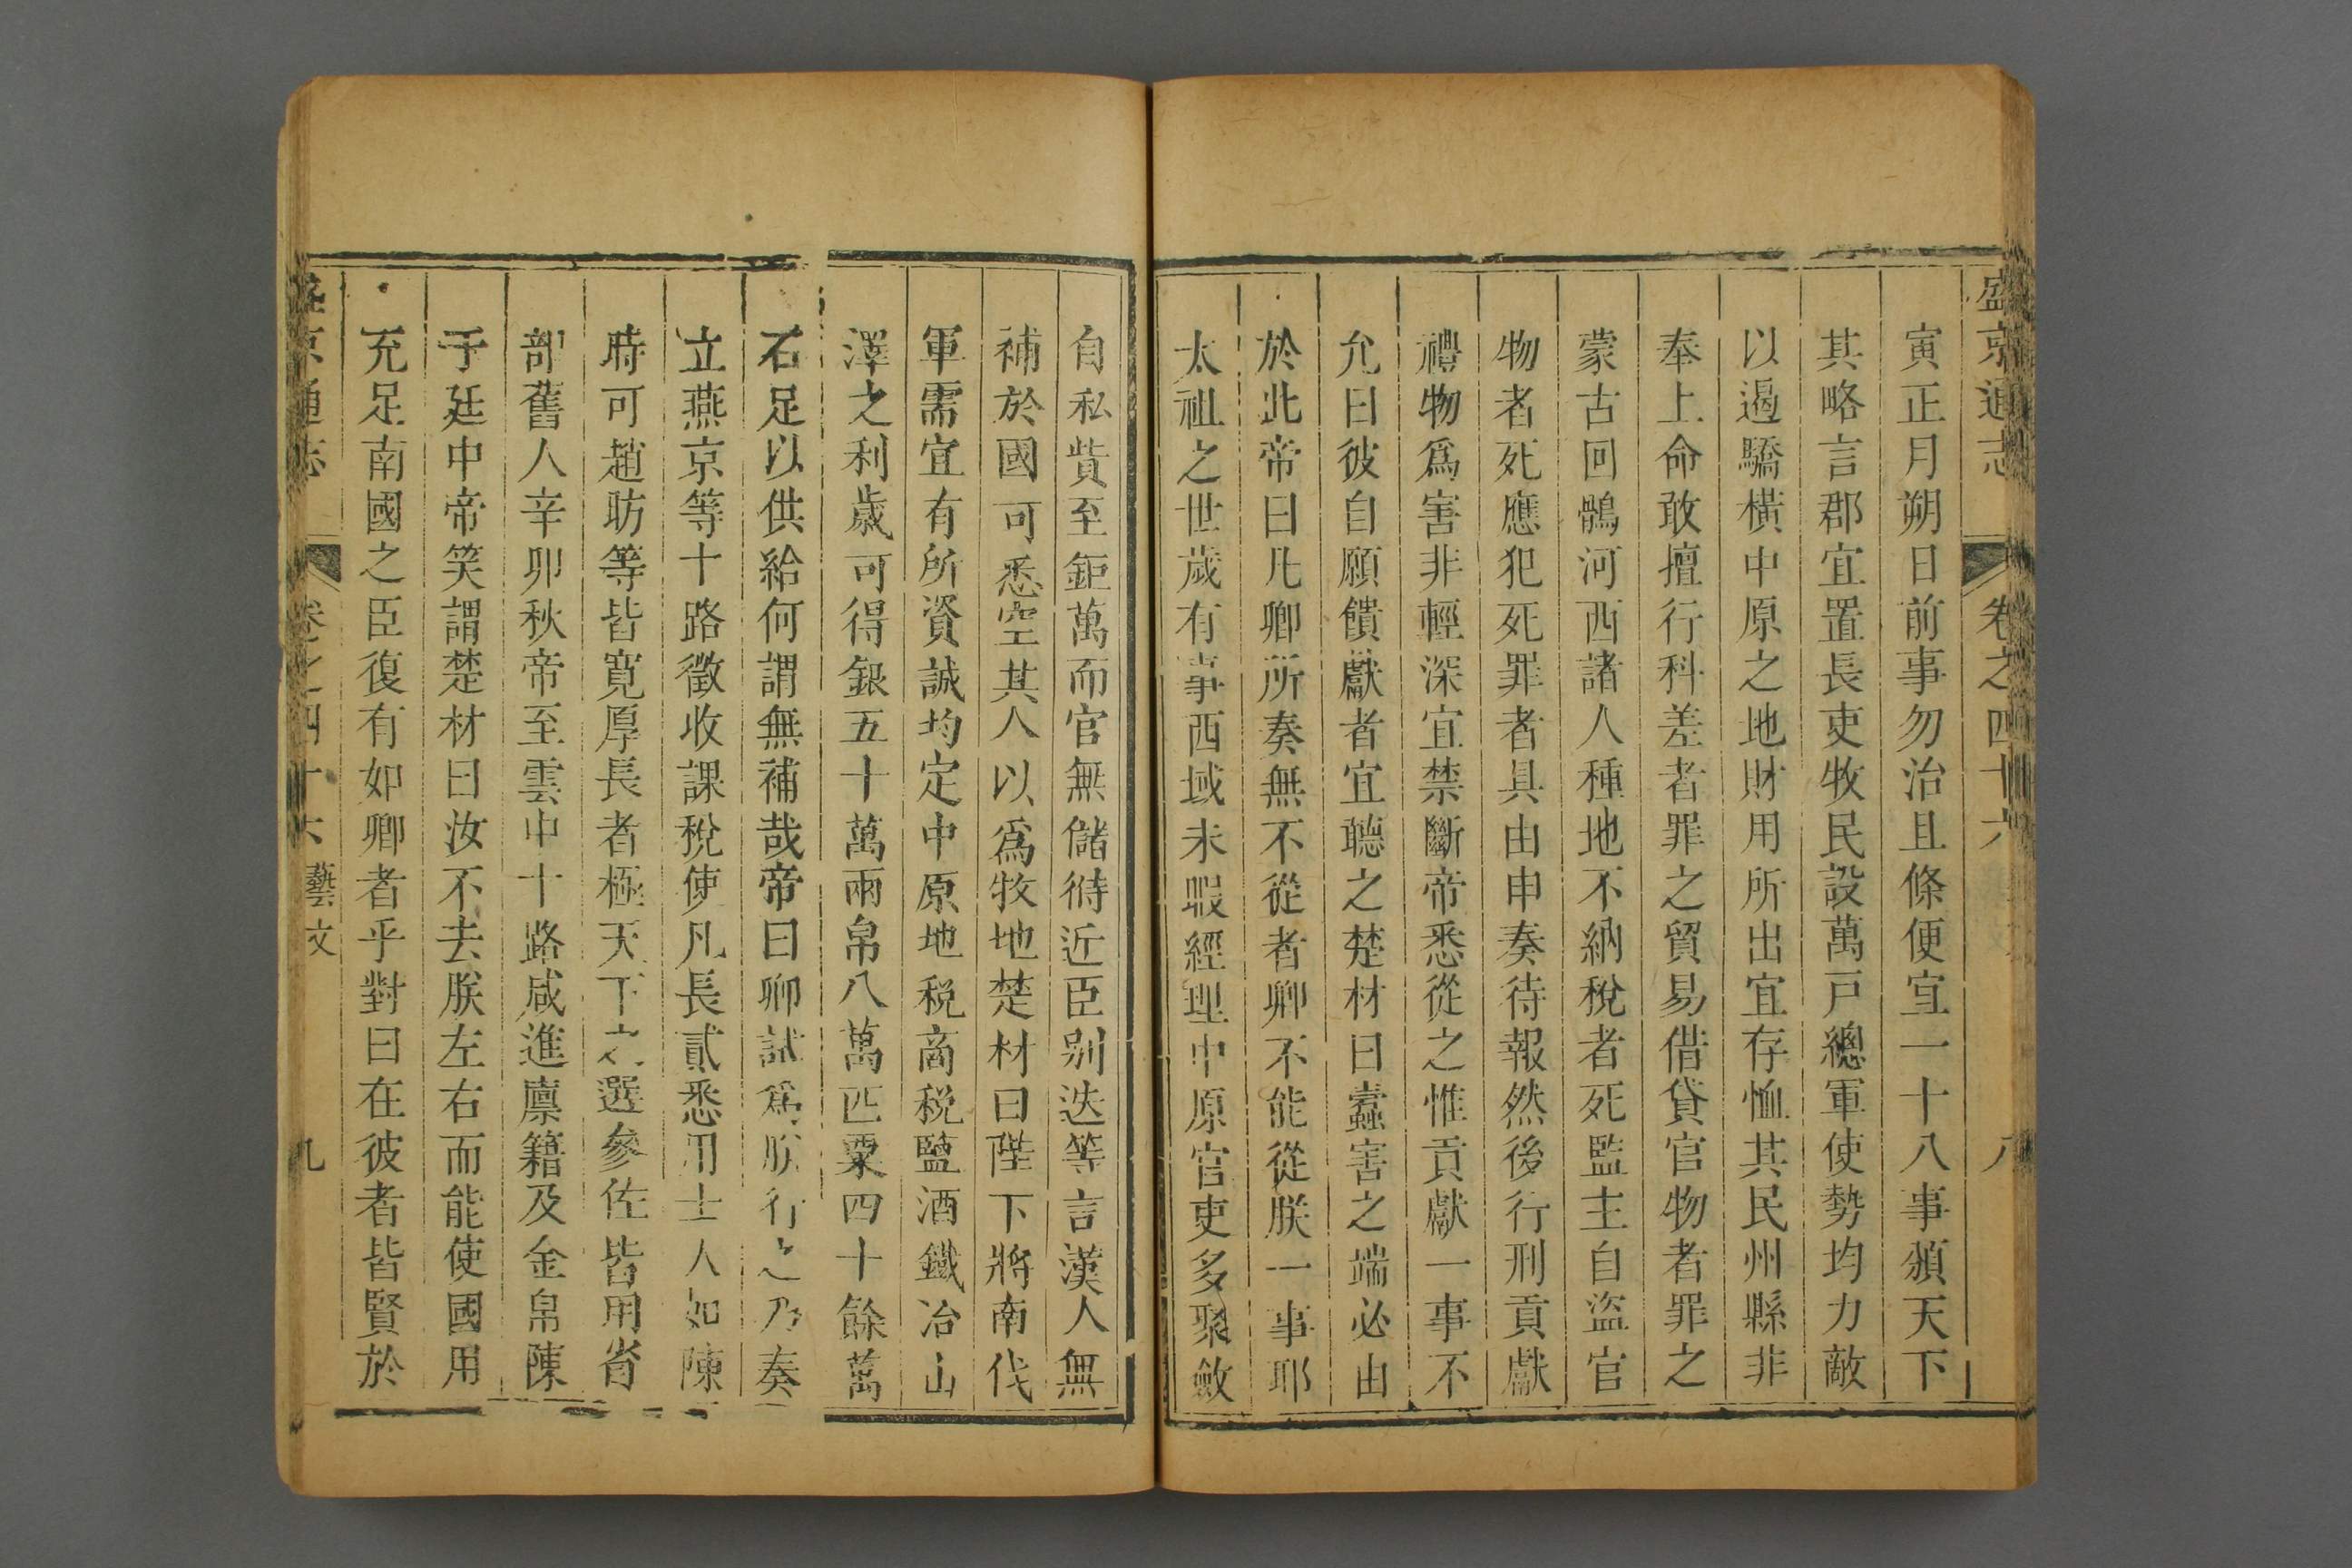 盛京通志 卷之四十六 八
寅正月朔日前事勿治且條便宜一十八事頒天下
其略言郡宜置長吏牧民設萬戸總軍使勢均力敵
以遏驕橫中原之地財用所出宜存恤其民州縣非
奉上命敢擅行科差者罪之貿易借貸官物者罪之
蒙古回鶻河西諸人種地不納稅者死監主自盜官
物者死應犯死罪者具由申奏待報然後行刑貢獻
禮物爲害非輕深宜禁斷帝悉從之惟貢獻一事不
允曰彼自願饋獻者宜聽之楚材曰蠹害之端必由
於此帝曰凡卿所奏無不從者卿不能從朕一事耶
太祖之世歲有事西域未暇經理中原官吏多聚斂
自私貲至鉅萬而官無儲偫近臣别迭等言漢人無
補於國可悉空其人以爲牧地楚材曰陛下將南伐
軍需宜有所資誠均定中原地税商税鹽酒鐵冶山
澤之利歲可得銀五十萬兩帛八萬匹粟四十餘萬
石足以供給何謂無補哉帝曰卿試爲朕行之乃奏
立燕京等十路徵收課稅使凡長貳悉用士人如陳
時可趙昉等皆寛厚長者極天下之選參佐皆用省
部舊人辛卯秋帝至雲中十路咸進廪籍及金帛陳
于廷中帝笑謂楚材曰汝不去朕左右而能使國用
充足南國之臣復有如卿者乎對曰在彼者皆賢於
盛京通志 卷之四十六 藝文 九